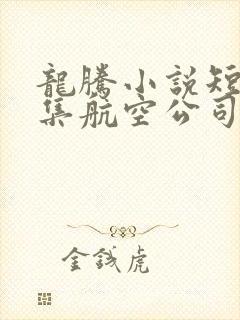 龍騰小說短
集航空公司
金钱虎